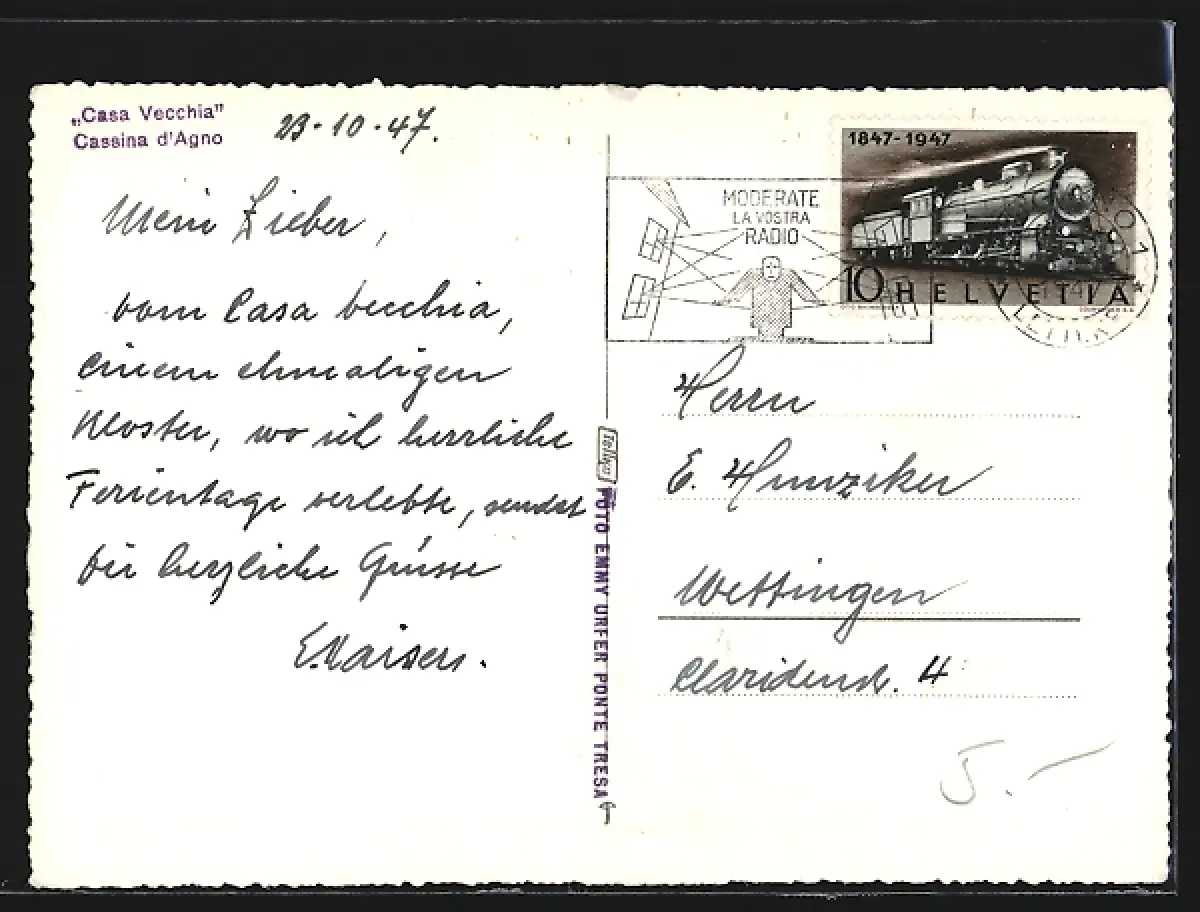 „Casa Vecchia"
Cassina d'Agno
23·10·47.
Mein Lieber,
vom Casa vecchia,
einem ehmaligen
Kloster, wo ich herrliche
Ferientage verlebte, sendet
Dir herzliche Grüsse
E. Kaiser.
MODERATE
LA VOSTRA
RADIO
1847-1947
10 HELVETIA
LETTERE
FOTO EMMY URFER PONTE TRESA
Herrn
E. Hunziker
Wettingen
Claridenstr. 4
5.–